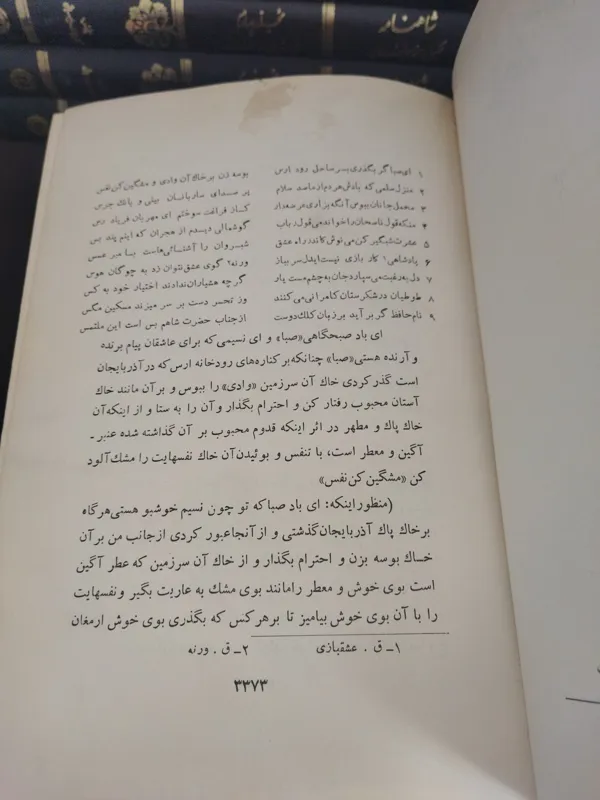 شاهنامه
۱ ای صبا گر بگذری بر ساحل رود ارس بوسه زن بر خاك آن وادی و مشگین كن نفس
۲ منزل سلمی که بادش هر دم از ما صد سلام پر صدای ساربانان بینی و بانك جرس
۳ محمل جانان ببوس آنگه بزاری عرضه دار کز فراقت سوختم ای مهربان فریاد رس
۴ منکه قول ناصحان را خواندمی قول رباب گوشمالی دیدم از هجران که اینم پند بس
۵ عشرت شبگیر کن می نوش کاندر راه عشق شبروان را آشنائی‌هاست با میر عسس
۶ پادشاهی۱ کار بازی نیست ایدل سر بباز ورنه۲ گوی عشق نتوان زد به چوگان هوس
۷ دل به رغبت می سپارد جان به چشم مست یار گرچه هشیاران ندادند اختیار خود به کس
۸ طوطیان در شکرستان کامرانی می کنند وز تحسر دست بر سر میزند مسکین مگس
۹ نام حافظ گر بر آید بر زبان كلك دوست از جناب حضرت شاهم بس است این ملتمس
ای باد صبحگاهی «صبا» و ای نسیمی که برای عاشقان پیام برنده
و آرنده هستی «صبا» چنانکه بر کناره‌های رودخانه ارس که در آذربایجان
است گذر کردی خاك آن سرزمین «وادی» را ببوس و بر آن مانند خاك
آستان محبوب رفتار کن و احترام بگذار و آن را به ستا و از اینکه آن
خاك پاك و مطهر در اثر اینکه قدوم محبوب بر آن گذاشته شده عنبر ـ
آگین و معطر است، با تنفس و بوئیدن آن خاك نفسهایت را مشك آلود
کن «مشگین کن نفس»
(منظور اینکه: ای باد صبا که تو چون نسیم خوشبو هستی هرگاه
بر خاك پاك آذربایجان گذشتی و از آنجا عبور کردی از جانب من بر آن
خساك بوسه بزن و احترام بگذار و از خاك آن سرزمین که عطر آگین
است بوی خوش و معطر را مانند بوی مشك به عاریت بگیر و نفسهایت
را با آن بوی خوش بیامیز تا بر هر کس که بگذری بوی خوش ارمغان
۱ـ ق . عشقبازی ۲ـ ق . ورنه
۳۳۷۳